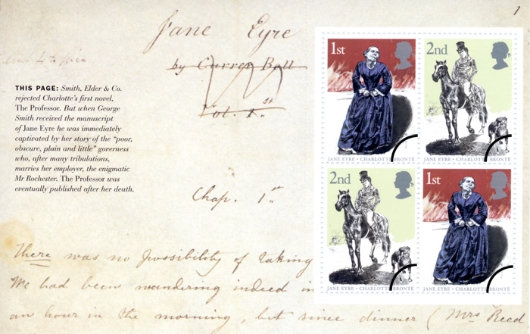 1
Jane Eyre
by Currer Bell
Vol. 1.st
THIS PAGE: Smith, Elder & Co.
rejected Charlotte's first novel,
The Professor. But when George
Smith received the manuscript
of Jane Eyre he was immediately
captivated by her story of the "poor,
obscure, plain and little" governess
who, after many tribulations,
marries her employer, the enigmatic
Mr Rochester. The Professor was
eventually published after her death.
Chap. 1st
There was no possibility of taking
We had been wandering indeed in
an hour in the morning, but since dinner (Mrs Reed
1st
2nd
JANE EYRE · CHARLOTTE BRONTË
JANE EYRE · CHARLOTTE BRONTË
2nd
1st
JANE EYRE · CHARLOTTE BRONTË
JANE EYRE · CHARLOTTE BRONTË